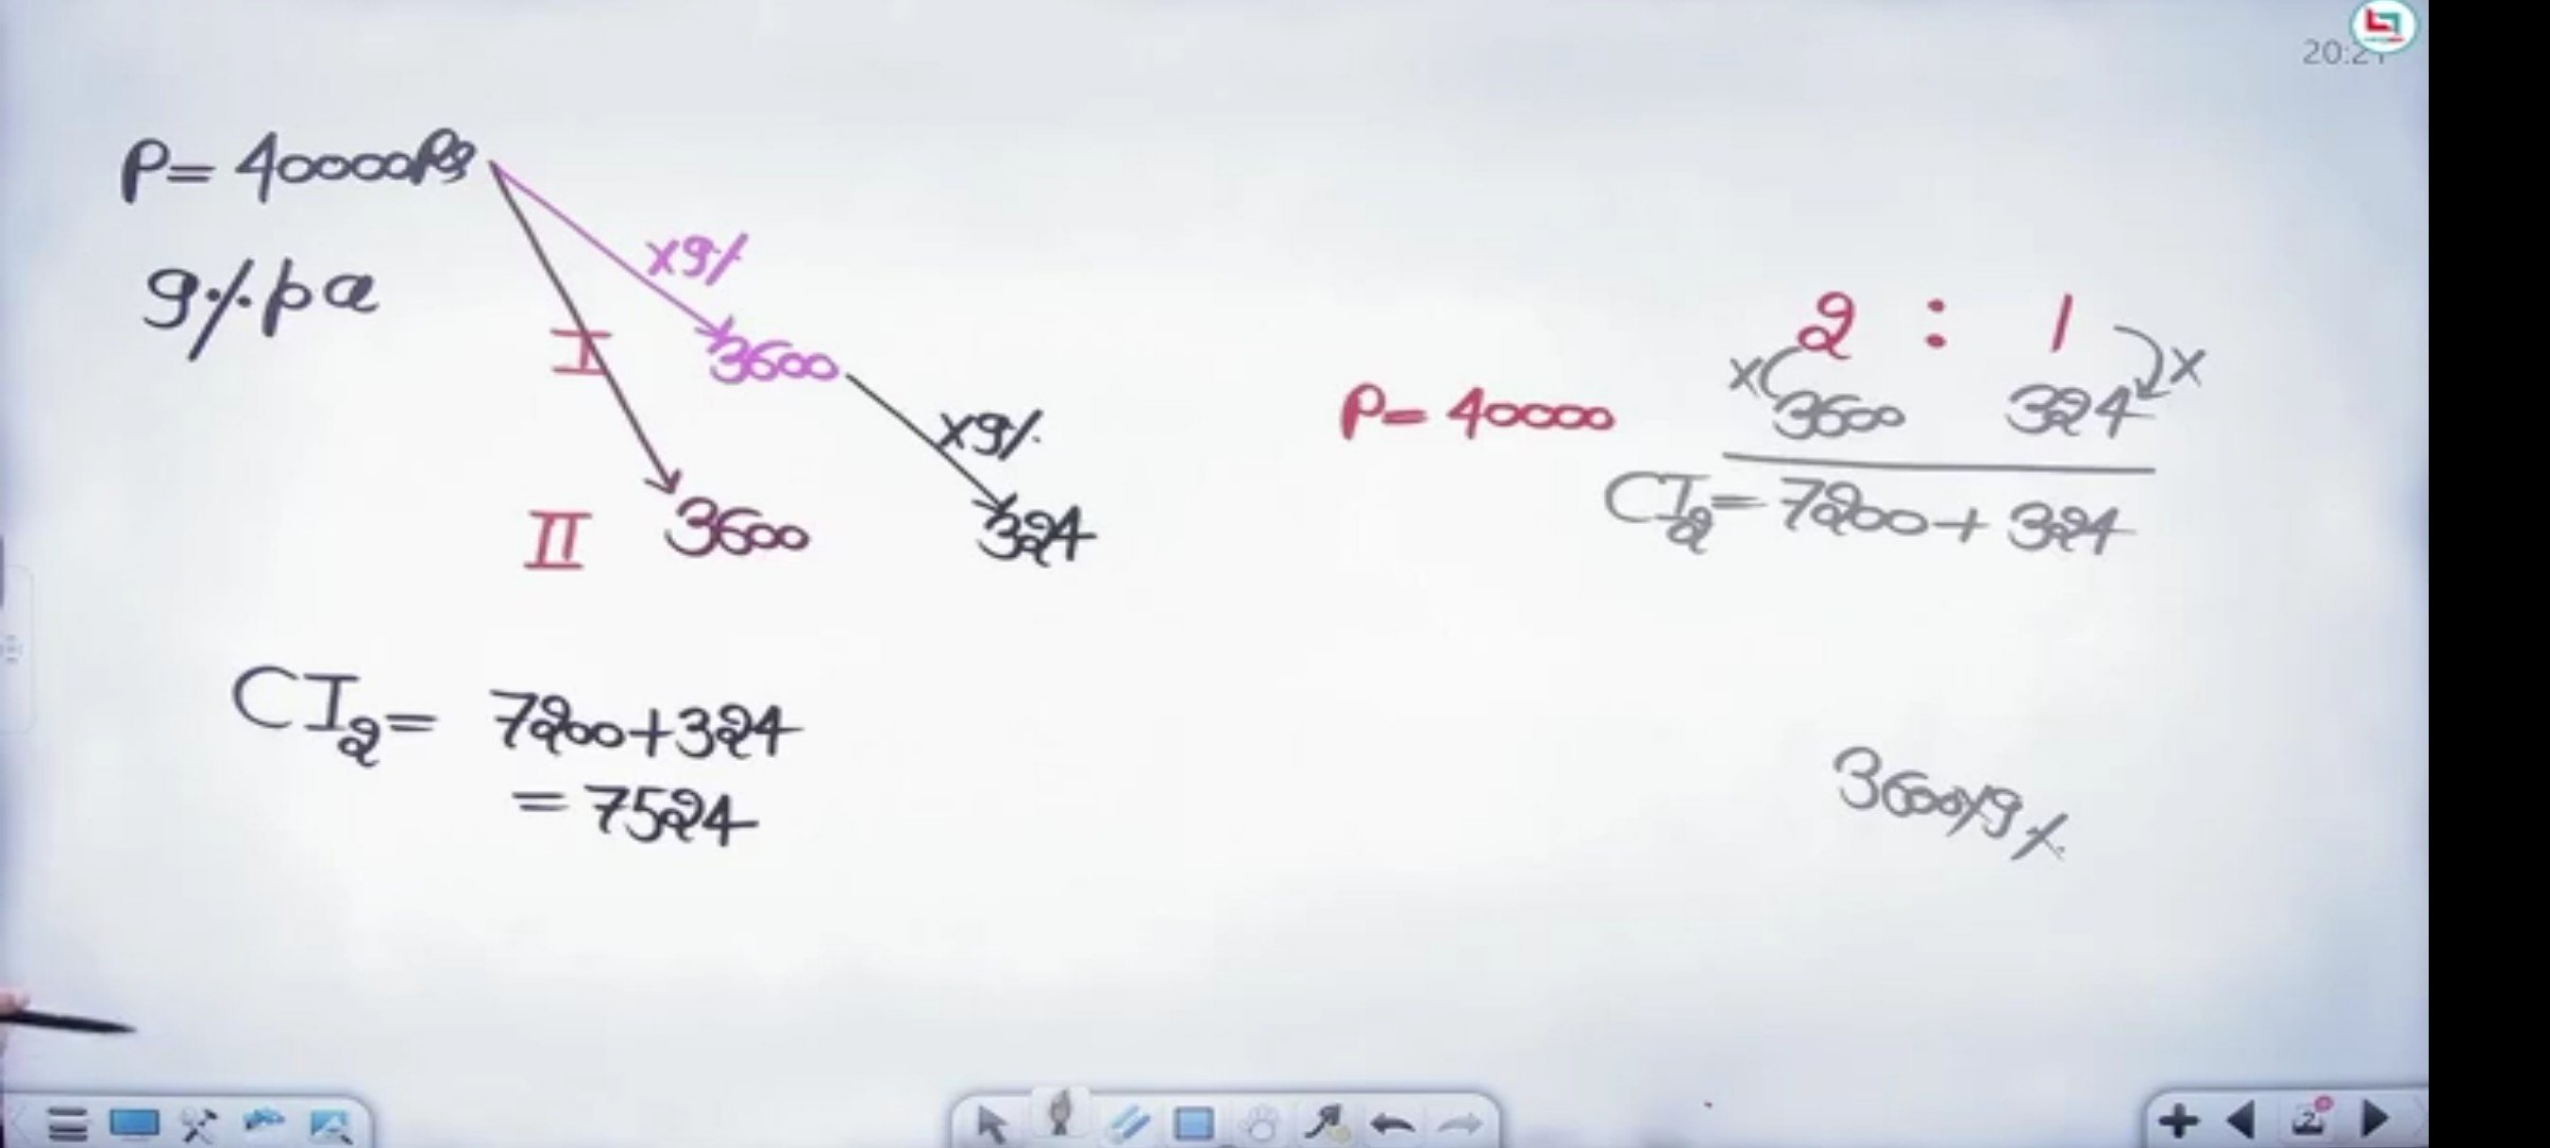 P= 40000Rs
9% pa
x9%
I 3600
x9%
II 3600 324
CI2= 7200+324
= 7524
2 : 1
x x
P= 40000 3600 324
CI2= 7200+ 324
3600x9%
2